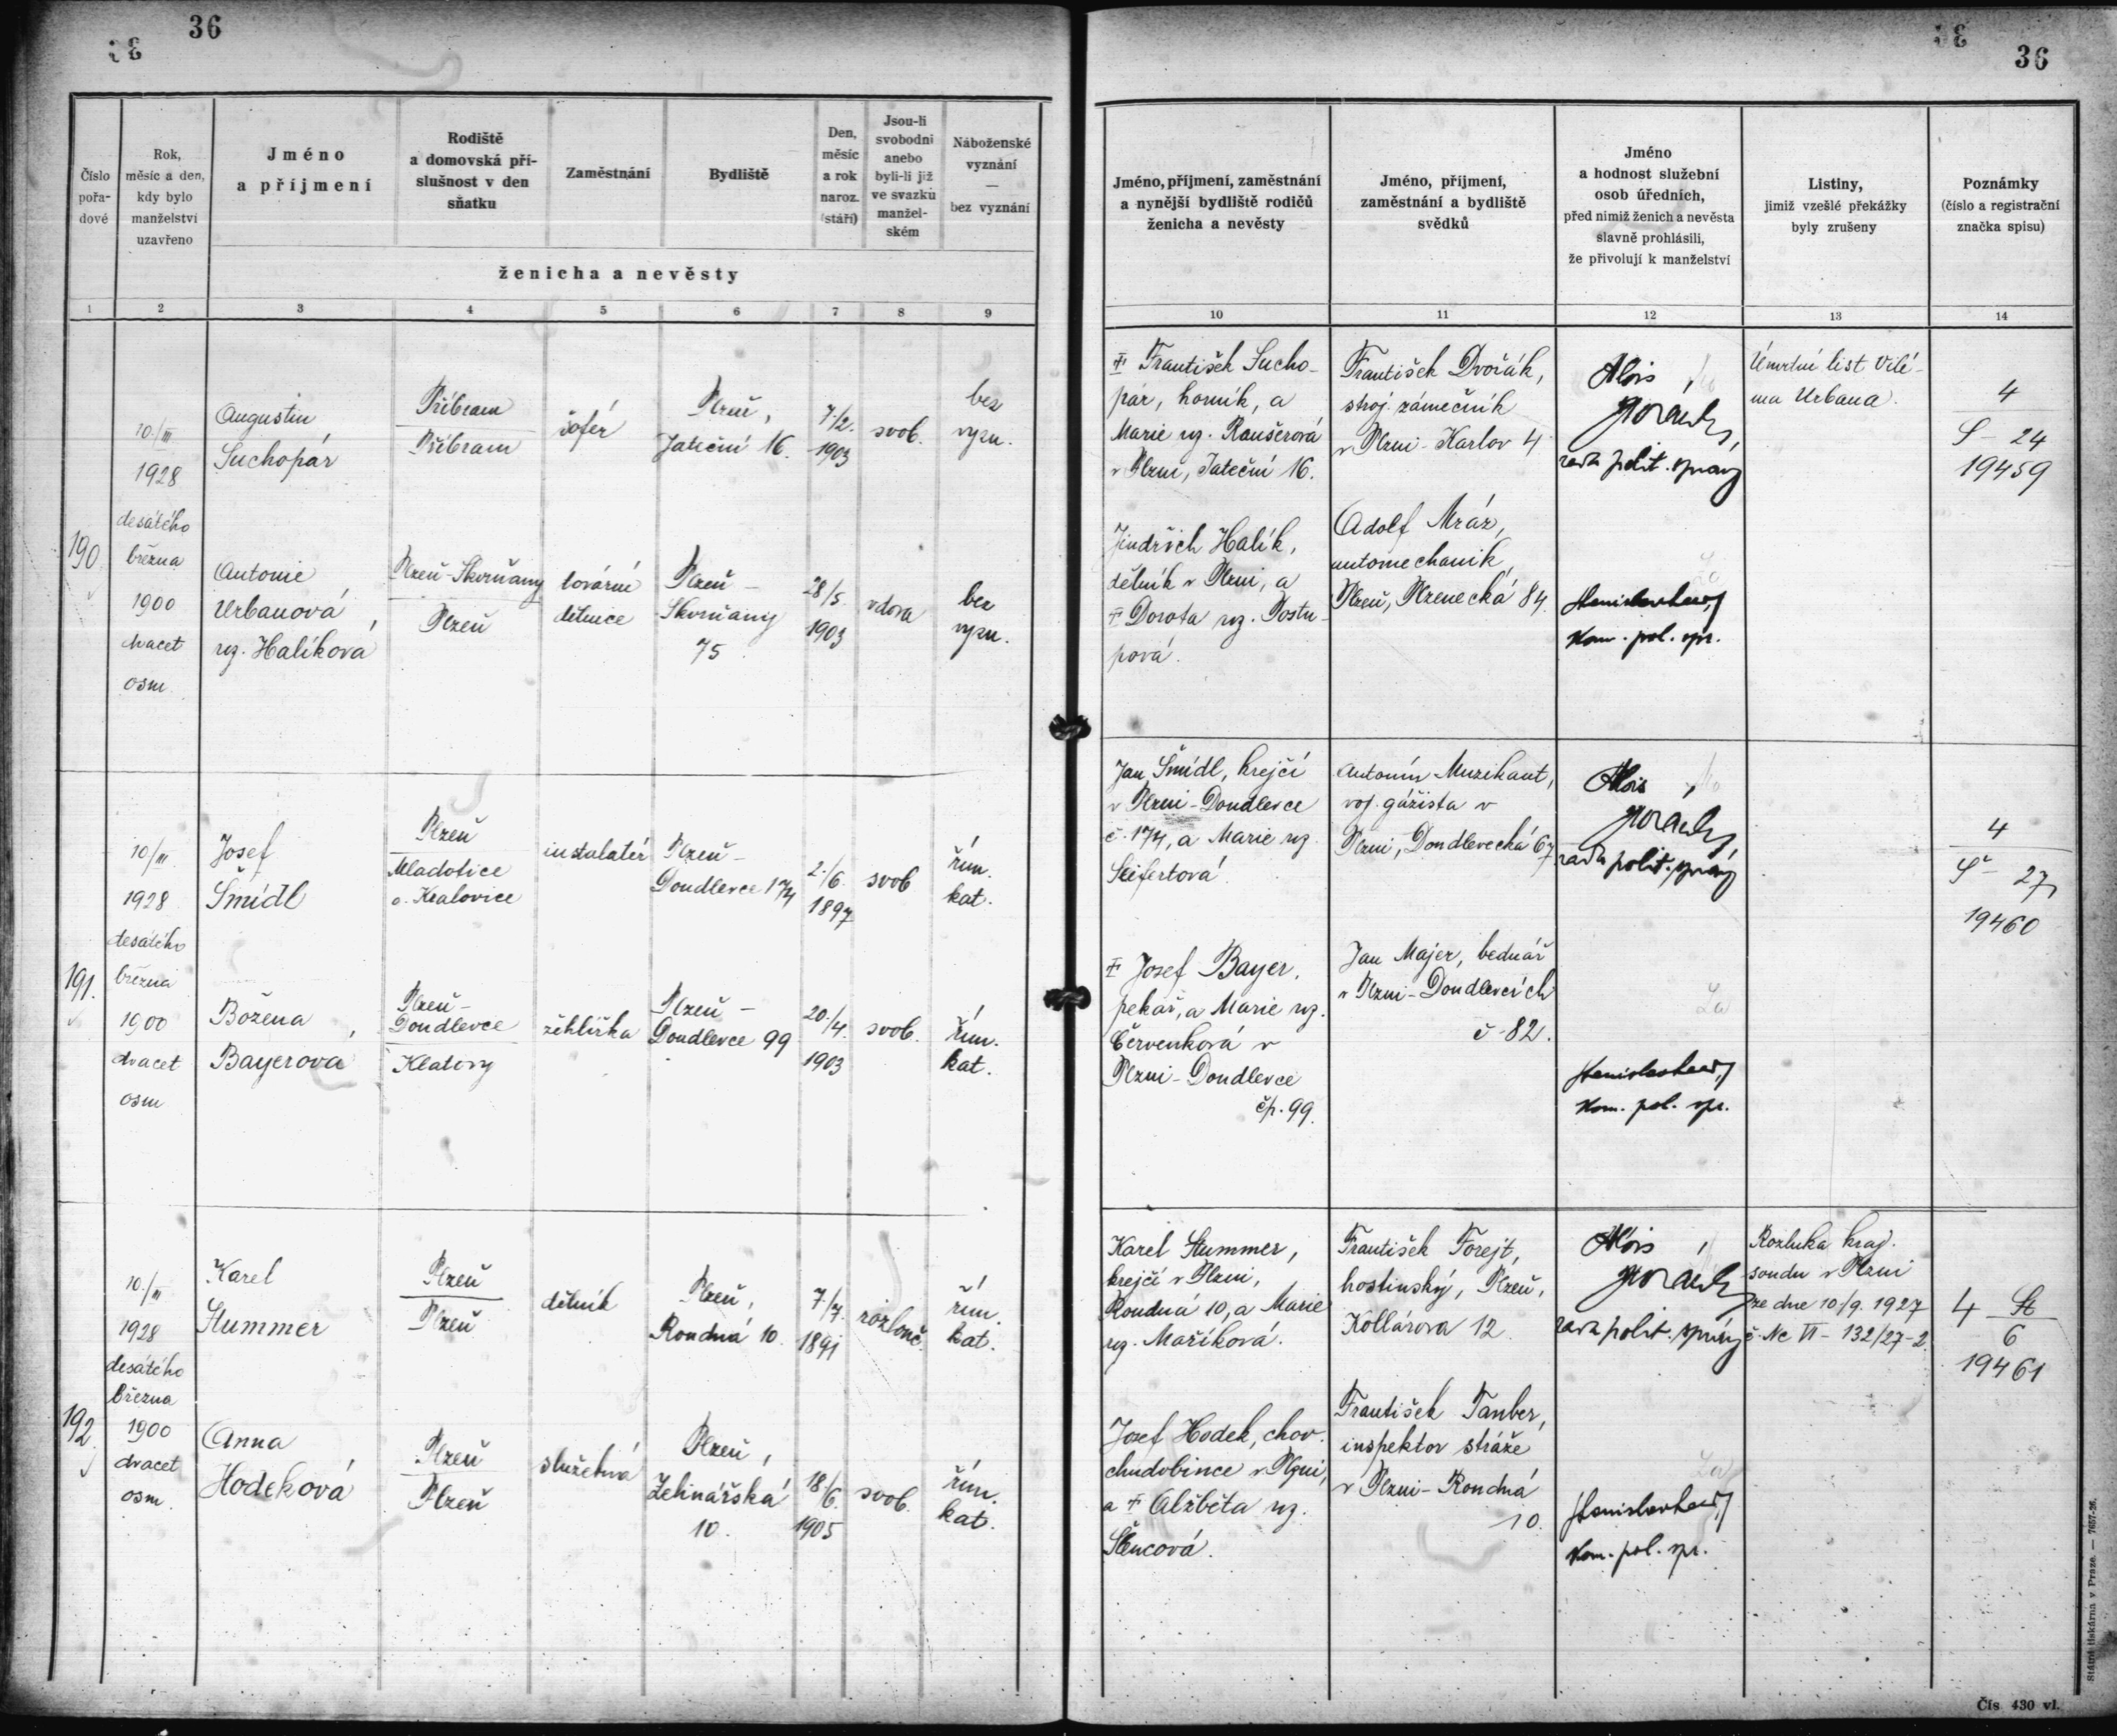 36
36
Číslo
pořa-
dové
Rok,
měsíc a den,
kdy bylo
manželství
uzavřeno
Jméno
a příjmení
Rodiště
a domovská pří-
slušnost v den
sňatku
Zaměstnání
Bydliště
Den,
měsíc
a rok
naroz.
(stáří)
Jsou-li
svobodni
anebo
byli-li již
ve svazku
manžel-
ském
Náboženské
vyznání
—
bez vyznání
ženicha a nevěsty
1 2 3 4 5 6 7 8 9
Jméno, příjmení, zaměstnání
a nynější bydliště rodičů
ženicha a nevěsty
Jméno, příjmení,
zaměstnání a bydliště
svědků
Jméno
a hodnost služební
osob úředních,
před nimiž ženich a nevěsta
slavně prohlásili,
že přivolují k manželství
Listiny,
jimiž vzešlé překážky
byly zrušeny
Poznámky
(číslo a registrační
značka spisu)
10 11 12 13 14
190.
10./III
1928
desátého
března
1900
dvacet
osm
Augustin
Suchopár
Příbram
Příbram
šofér
Plzeň,
Jateční 16.
7./2.
1903
svob.
bez
vyzn.
Antonie
Urbanová,
roz. Halíková
Plzeň-Skvrňany
Plzeň
tovární
dělnice
Plzeň -
Skvrňany
75
28/5.
1903
vdova
bez
vyzn.
† František Sucho-
pár, horník, a
Marie roz. Raušerová
v Plzni, Jateční 16.
Jindřich Halík,
dělník v Plzni, a
† Dorota roz. Postu-
pová.
František Dvořák,
stroj. zámečník
v Plzni - Karlov 4
Adolf Mráz,
automechanik,
Plzeň, Plzenecká 84.
Alois
rada polit. správy
kom. pol. spr.
Úmrtní list Vilé-
ma Urbana.
4
S - 24
19459
191.
10/III
1928
desátého
března
1900
dvacet
osm
Josef
Šmídl
Plzeň
Mladotice
o. Kralovice
instalatér
Plzeň -
Doudlevce 174
2./6.
1897
svob
řím.
kat.
Božena
Bayerová
Plzeň -
Doudlevce
Klatovy
žehlířka
Plzeň -
Doudlevce 99
20./4.
1903
svob.
řím.
kat.
Jan Šmídl, krejčí
v Plzni - Doudlevce
č. 174, a Marie roz.
Seifertová.
† Josef Bayer,
pekař, a Marie roz.
Červenková v
Plzni - Doudlevce
čp. 99.
Antonín Muzikant,
voj. gážista v
Plzni, Doudlevecká 67
Jan Majer, bednář
v Plzni - Doudlevcích
č. 82.
Alois
rada polit. správy
kom. pol. spr.
4
Š - 27
19460
192.
10./III
1928
desátého
března
1900
dvacet
osm.
Karel
Stummer
Plzeň
Plzeň
dělník
Plzeň,
Roudná 10.
7./7.
1891
rozlouč.
řím.
kat.
Anna
Hodeková
Plzeň
Plzeň
služebná
Plzeň,
Zelinářská
10.
18/6.
1905
svob.
řím.
kat.
Karel Stummer,
krejčí v Plzni,
Roudná 10, a Marie
roz. Maříková.
Josef Hodek, chov.
chudobince v Plzni,
a † Alžběta roz.
Šlencová.
František Forejt,
hostinský, Plzeň,
Kollárova 12
František Tauber,
inspektor stráže
v Plzni - Roudná
10.
Alois
rada polit. správy
kom. pol. spr.
Rozluka kraj.
soudu v Plzni
ze dne 10/9. 1927
č. Nc VI - 132/27-2.
4 St
6
19461
Státní tiskárna v Praze. — 7657-26.
Čís. 430 vl.